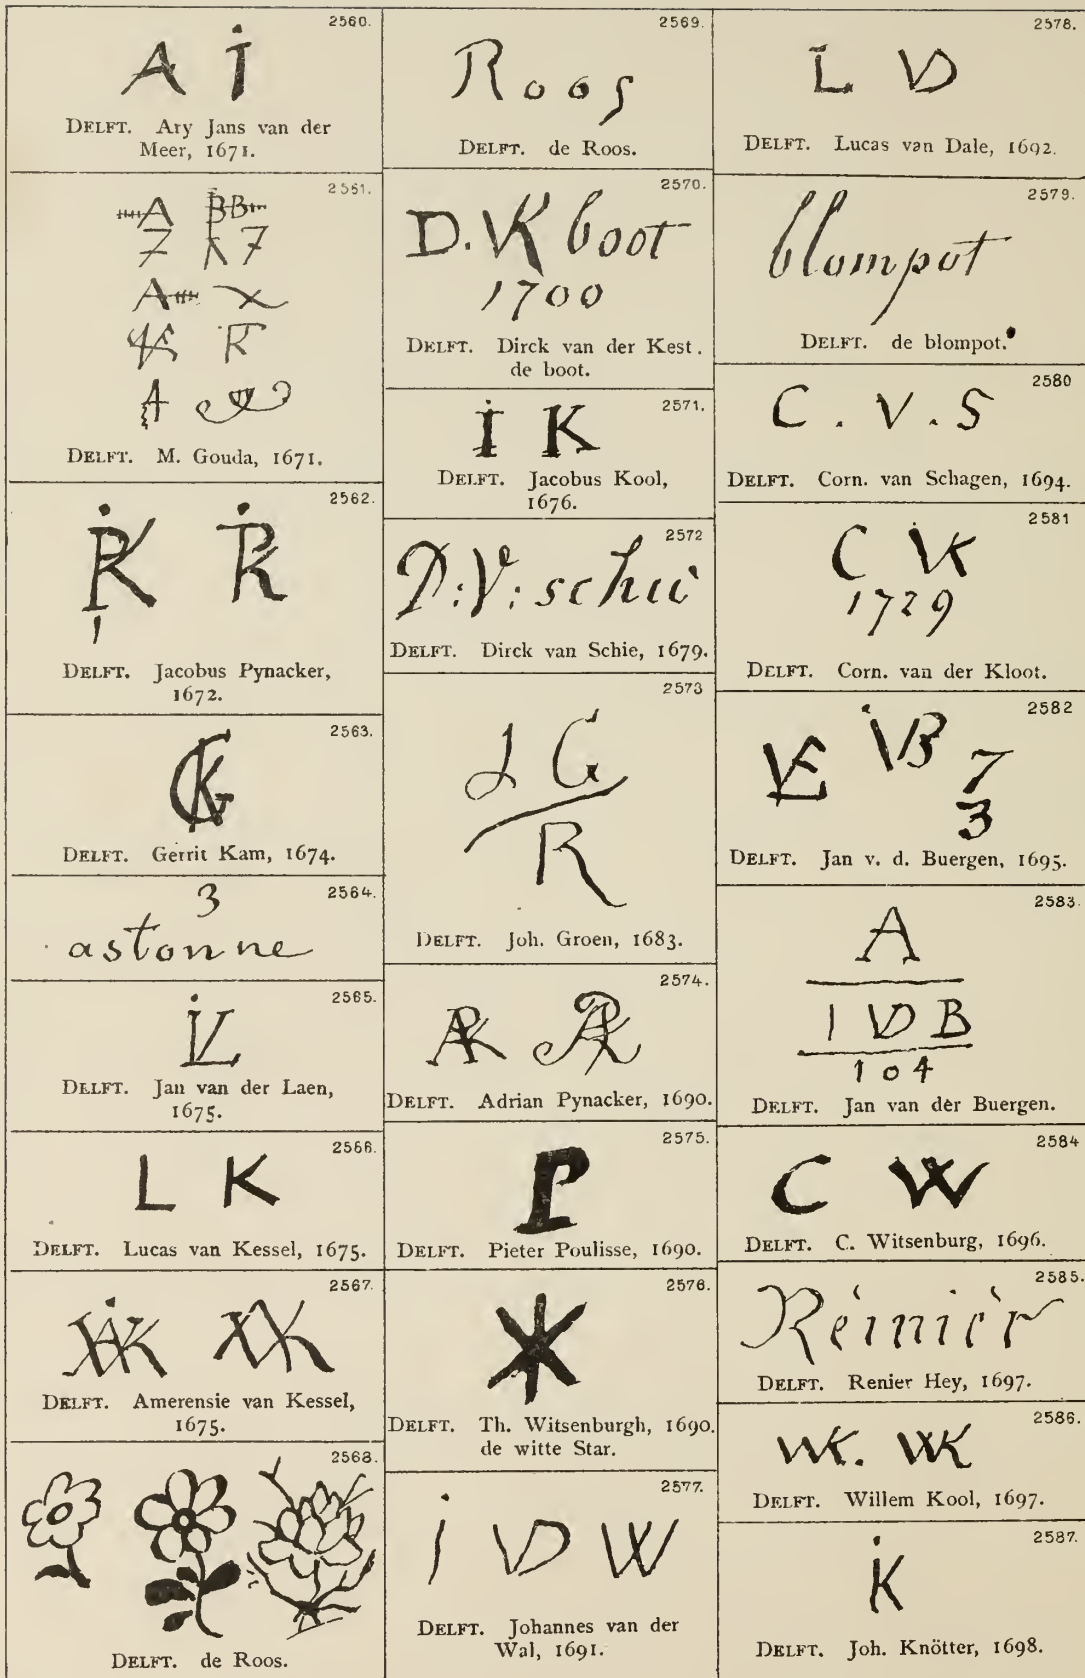 2560.
A i
DELFT. Ary Jans van der
Meer, 1671.
2561.
A BB
7 7
A
R
A
DELFT. M. Gouda, 1671.
2562.
iPK iPK
1
DELFT. Jacobus Pynacker,
1672.
2563.
GK
DELFT. Gerrit Kam, 1674.
2564.
3
astonne
2565.
iVL
DELFT. Jan van der Laen,
1675.
2566.
L K
DELFT. Lucas van Kessel, 1675.
2567.
DELFT. Amerensie van Kessel,
1675.
2568.
DELFT. de Roos.
2569.
Roos
DELFT. de Roos.
2570.
D. VK boot
1700
DELFT. Dirck van der Kest.
de boot.
2571.
i K
DELFT. Jacobus Kool,
1676.
2572
D:V:schie
DELFT. Dirck van Schie, 1679.
2573
J G
R
DELFT. Joh. Groen, 1683.
2574.
APK APK
DELFT. Adrian Pynacker, 1690.
2575.
P
DELFT. Pieter Poulisse, 1690.
2576.
DELFT. Th. Witsenburgh, 1690.
de witte Star.
2577.
i VD W
DELFT. Johannes van der
Wal, 1691.
2578.
L VD
DELFT. Lucas van Dale, 1692.
2579.
blompot
DELFT. de blompot.
2580
C . V . S
DELFT. Corn. van Schagen, 1694.
2581
C VK
1729
DELFT. Corn. van der Kloot.
2582
VE iVB 7
3
DELFT. Jan v. d. Buergen, 1695.
2583.
A
I VD B
104
DELFT. Jan van der Buergen.
2584
C W
DELFT. C. Witsenburg, 1696.
2585.
Reinier
DELFT. Renier Hey, 1697.
2586.
WK. WK
DELFT. Willem Kool, 1697.
2587.
iK
DELFT. Joh. Knötter, 1698.